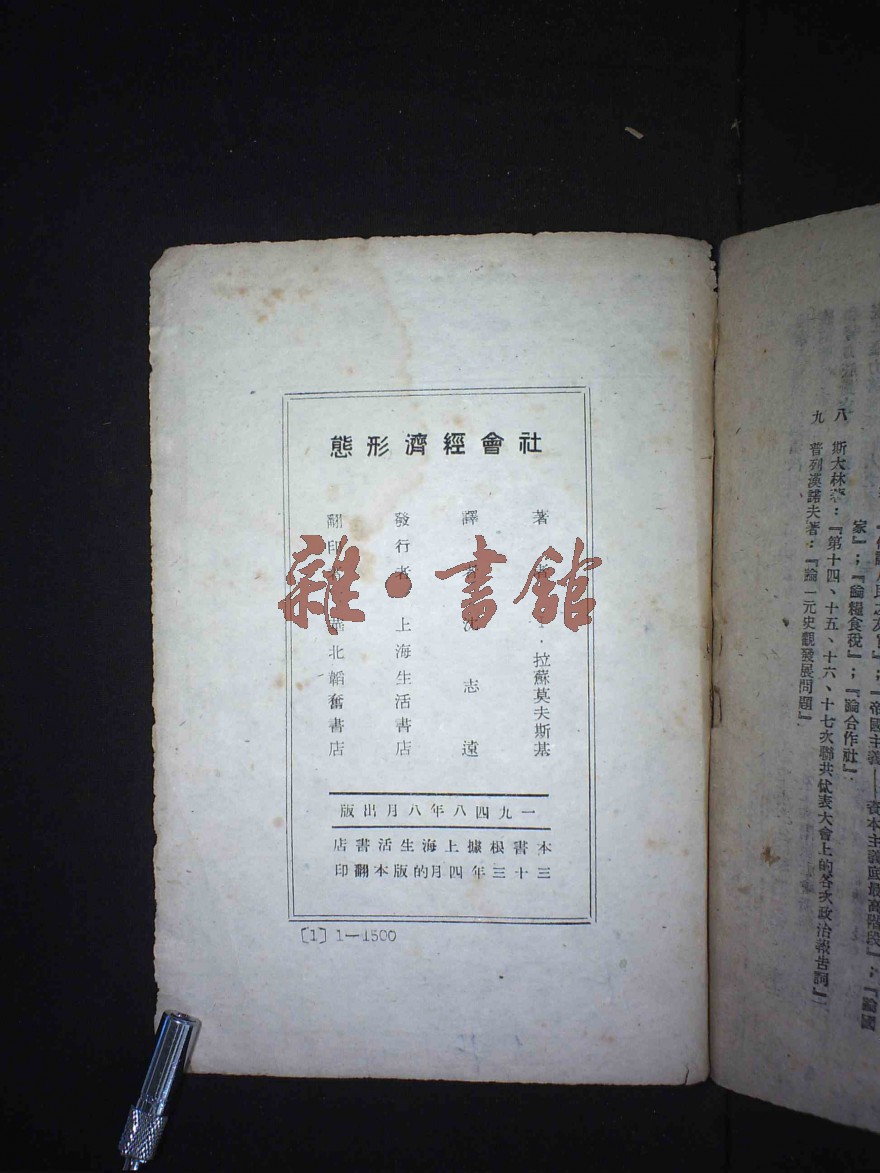 社會經濟形態
著 拉蘇莫夫斯基
譯 沈志遠
發行者 上海生活書店
翻印 華北韜奮書店
一九四八年八月出版
本書根據上海生活書店
三十三年四月的版本翻印
〔1〕1—1500
雜·書館
家』;『論糧食稅』;『論合作社』;
八 斯大林著:『第十四、十五、十六、十七次聯共代表大會上的各次政治報告詞』
九 普列漢諾夫著:『論一元史觀發展問題』